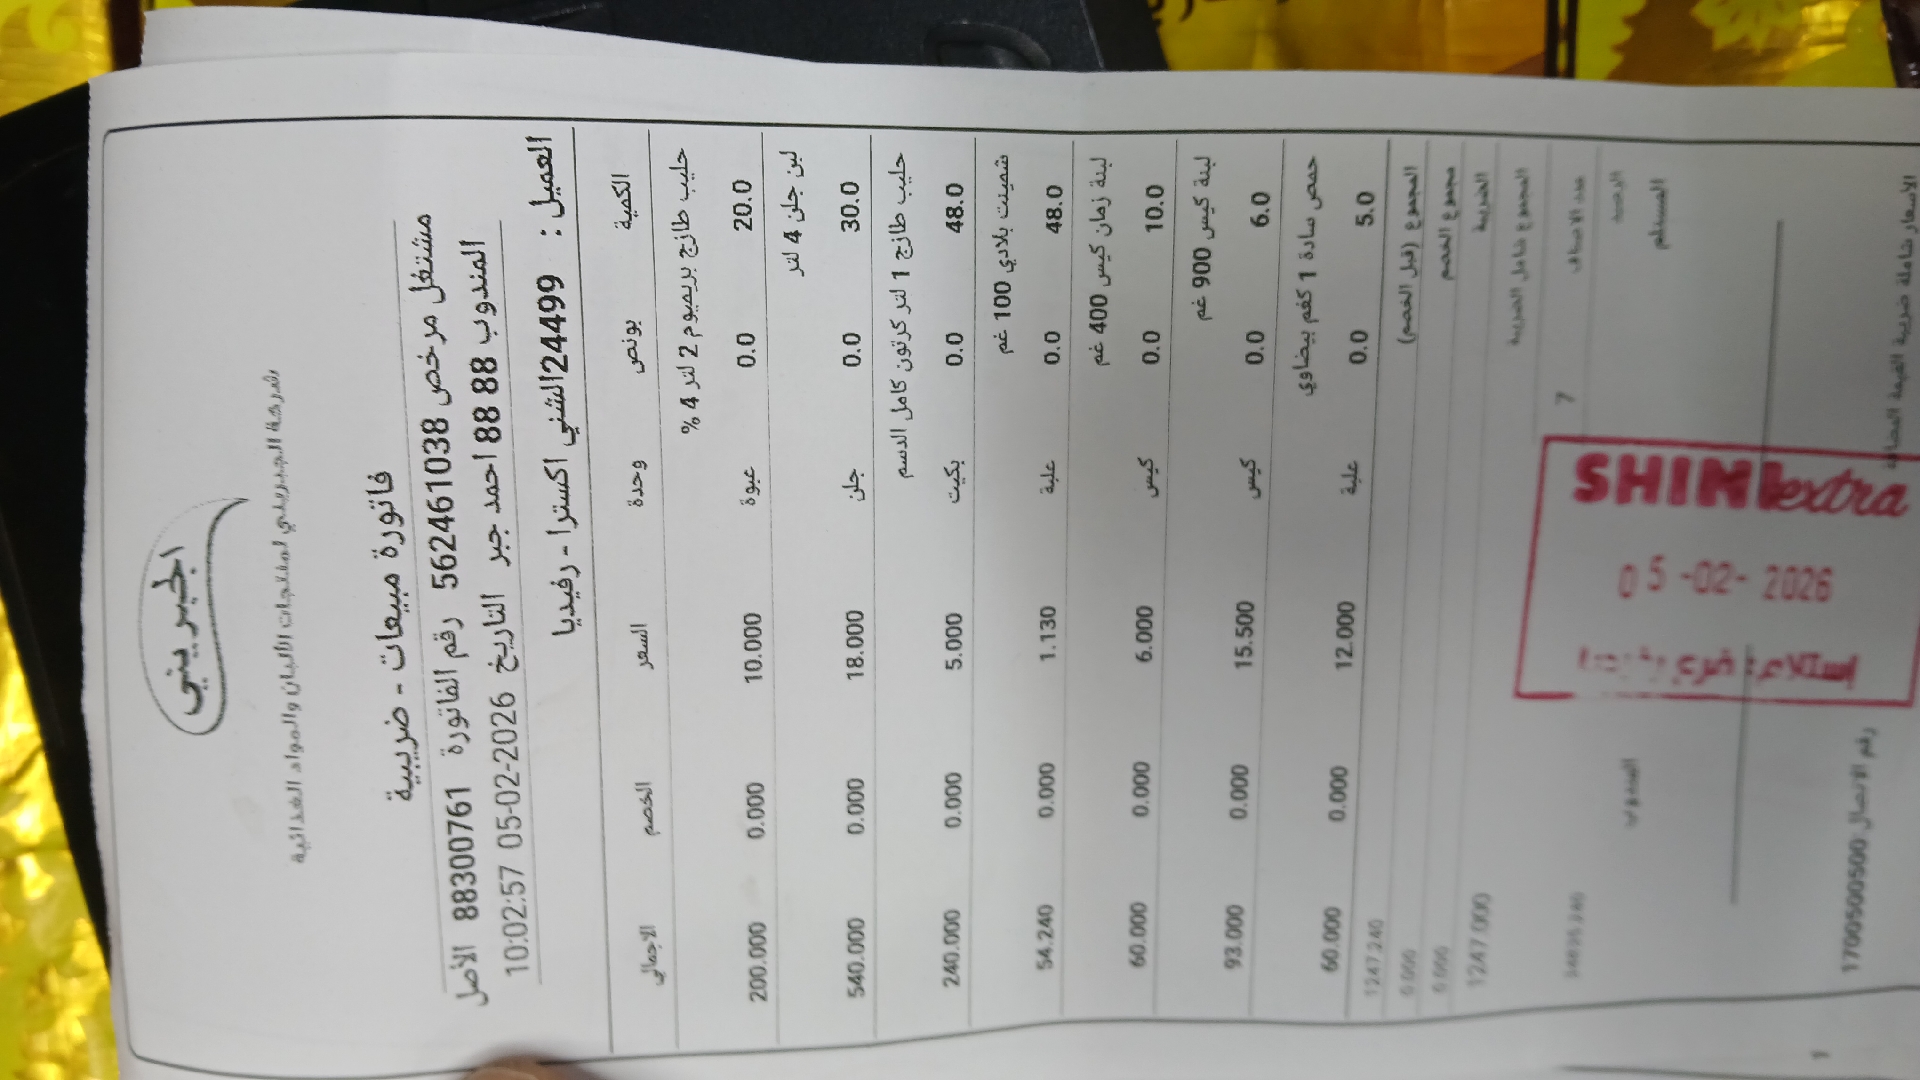 الجبريني
شركة الجبريني لمنتجات الألبان والمواد الغذائية
فاتورة مبيعات - ضريبية
مشتغل مرخص 562461038 رقم الفاتورة 88300761 الأصل
المندوب 88 88 احمد جبر التاريخ 2026-02-05 10:02:57
العميل : 24499الشني اكسترا - رفيديا
الكمية بونص وحدة السعر الخصم الاجمالي
حليب طازج بريميوم 2 لتر 4 %
20.0 0.0 عبوة 10.000 0.000 200.000
لبن جلن 4 لتر
30.0 0.0 جلن 18.000 0.000 540.000
حليب طازج 1 لتر كرتون كامل الدسم
48.0 0.0 بكيت 5.000 0.000 240.000
شمينت بلادي 100 غم
48.0 0.0 علبة 1.130 0.000 54.240
لبنة زمان كيس 400 غم
10.0 0.0 كيس 6.000 0.000 60.000
لبنة كيس 900 غم
6.0 0.0 كيس 15.500 0.000 93.000
حمص سادة 1 كغم بيضاوي
5.0 0.0 علبة 12.000 0.000 60.000
المجموع (قبل الخصم) 1247.240
مجموع الخصم 0.000
الضريبة 0.000
المجموع شامل الضريبة 1247.000
عدد الاصناف 7
الرصيد
المستلم المندوب
SHINI extra
05-02-2026
إستلام: فرع رفيديا
الاسعار شاملة ضريبة القيمة المضافة
رقم الاتصال 1700500500
1